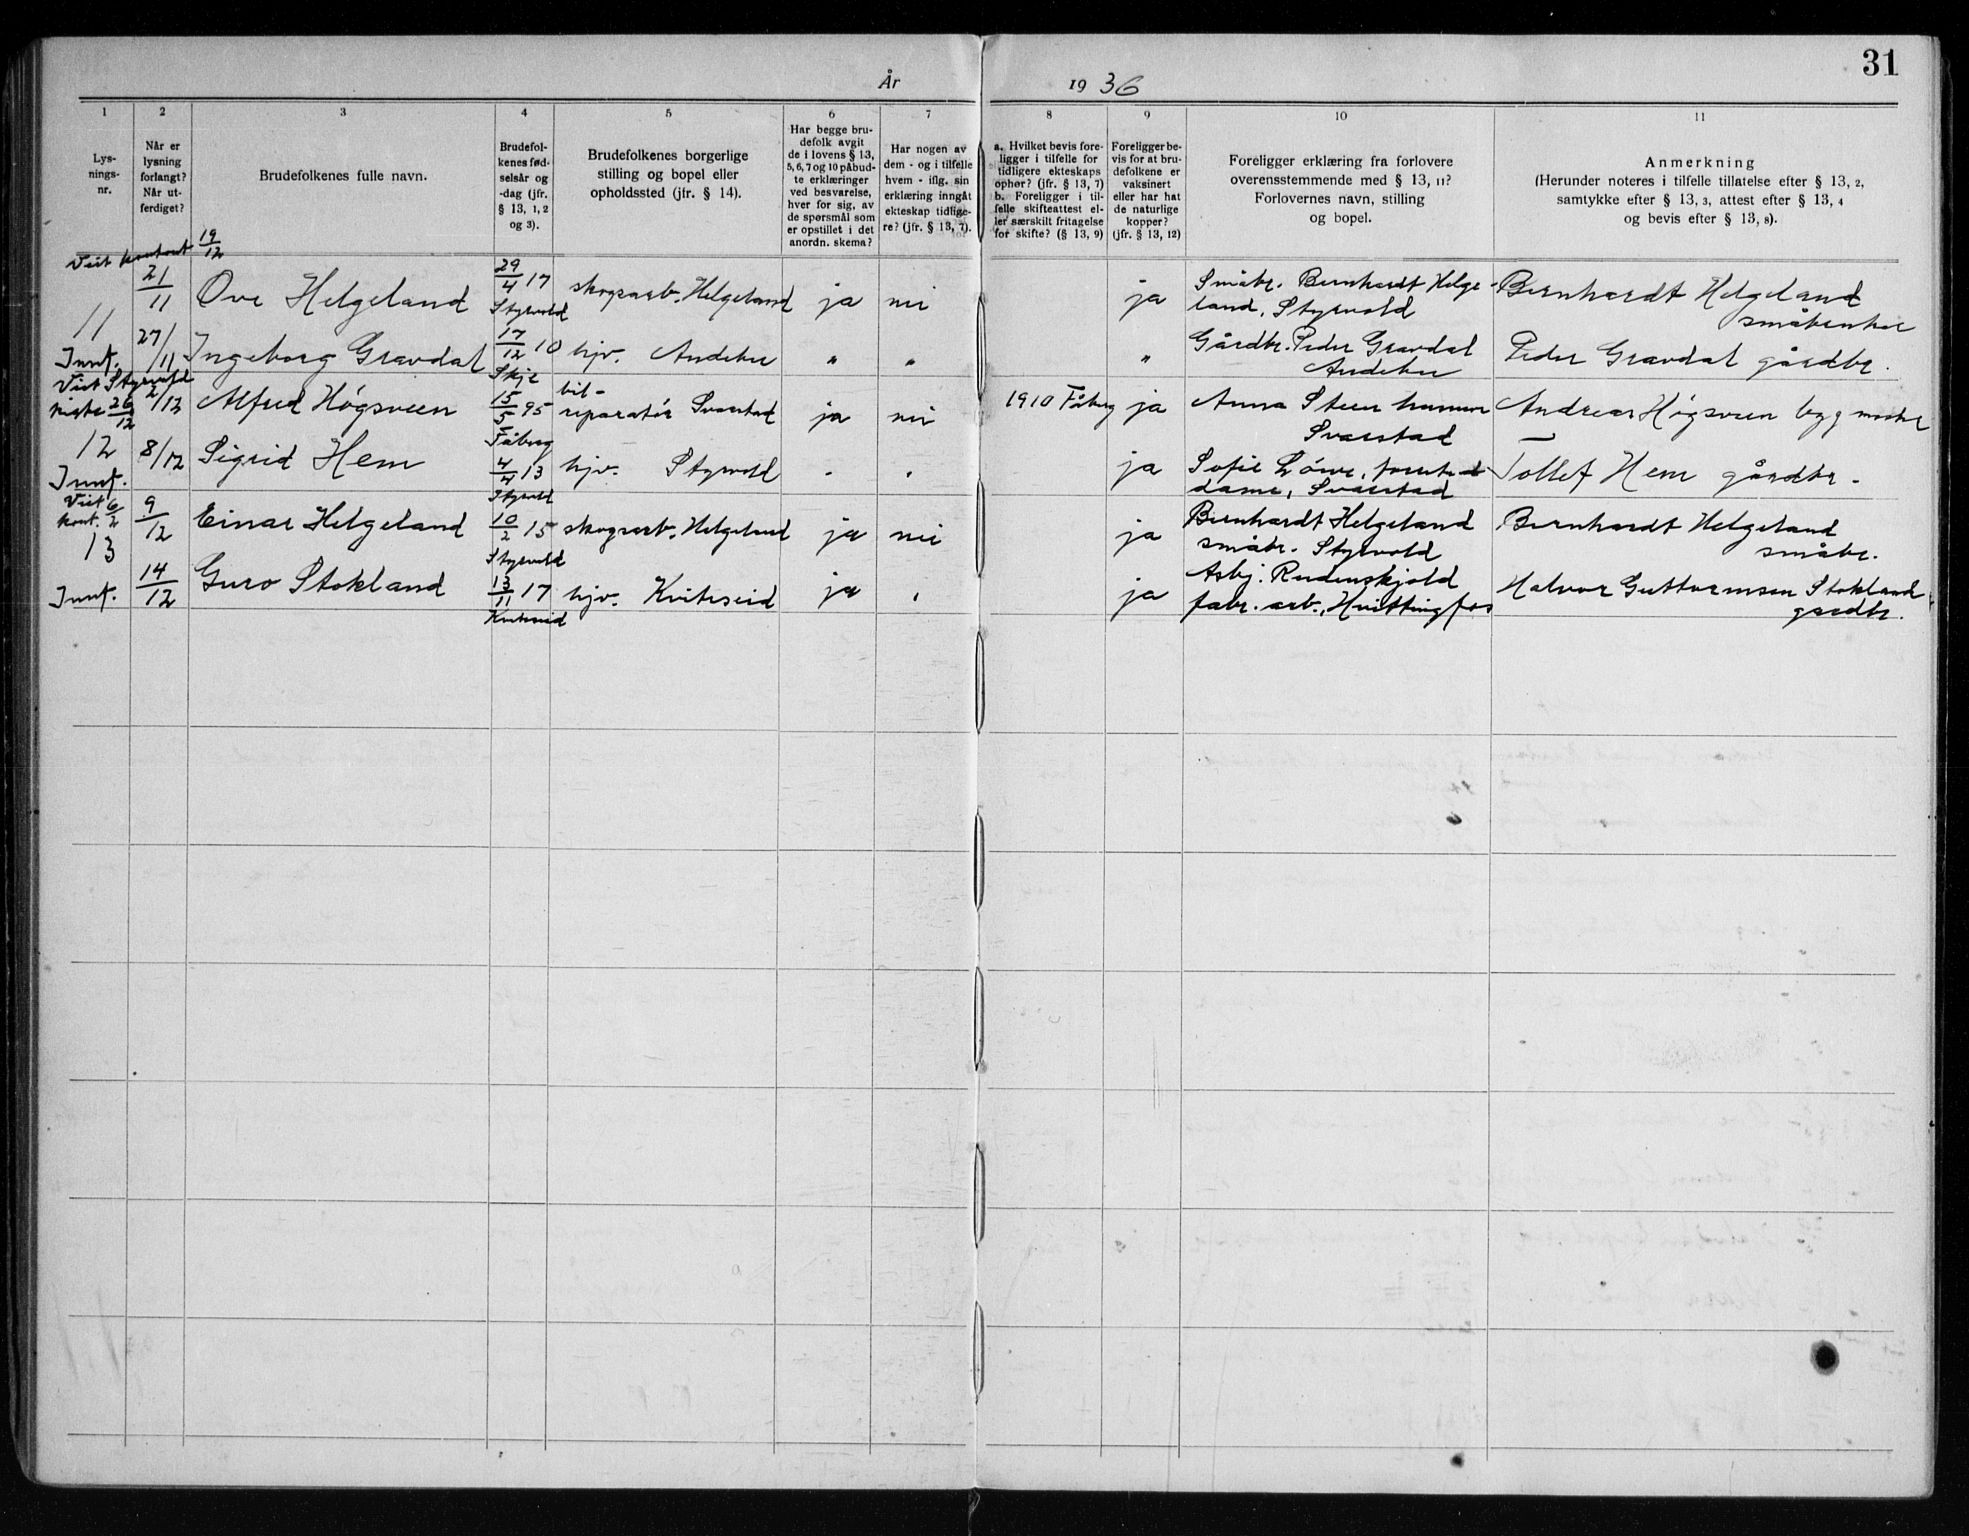 31
År 1936
1 2 3 4 5 6 7 8 9 10 11
Lys-
nings-
nr.
Når er
lysning
forlangt?
Når ut-
ferdiget?
Brudefolkenes fulle navn.
Brudefol-
kenes fød-
selsår og
-dag (jfr.
§ 13, 1, 2
og 3).
Brudefolkenes borgerlige
stilling og bopel eller
opholdssted (jfr. § 14).
Har begge bru-
defolk avgit
de i lovens § 13,
5, 6, 7 og 10 påbud-
te erklæringer
ved besvarelse,
hver for sig, av
de spørsmål som
er opstillet i det
anordn. skema?
Har nogen av
dem - og i tilfelle
hvem - iflg. sin
erklæring inngåt
ekteskap tidlige-
re? (jfr. § 13, 7).
a. Hvilket bevis fore-
ligger i tilfelle for
tidligere ekteskaps
ophør? (jfr. § 13, 7)
b. Foreligger i til-
felle skifteattest el-
ler særskilt fritagelse
for skifte? (§ 13, 9)
Foreligger be-
vis for at bru-
defolkene er
vaksinert
eller har hat
de naturlige
kopper?
(jfr. § 13, 12)
Foreligger erklæring fra forlovere
overensstemmende med § 13, 11?
Forlovernes navn, stilling
og bopel.
Anmerkning
(Herunder noteres i tilfelle tillatelse efter § 13, 2,
samtykke efter § 13, 3, attest efter § 13, 4
og bevis efter § 13, 8).
Viet kontoret 19/12
11
Innf.
21/11 Ove Helgeland 29/4 17 Styrvold skogsarb. Helgeland ja nei ja Småbr. Bernhardt Helge-
land, Styrvold
Bernhardt Helgeland
småbruker
27/11 Ingeborg Gravdal 17/12 10 Skje hjv. Andebu " " " Gårdbr. Peder Gravdal
Andebu
Peder Gravdal gårdbr.
Viet Styrvold
kirke 26/12
12
Innf.
2/12 Alfred Høgsveen 15/5 95 Fåberg bil-
reparatør Svarstad ja nei 1910 Fåberg ja Anna Steen
Svarstad
Andreas Høgsveen
8/12 Sigrid Hem 4/4 13 Styrvold hjv. Styrvold " " ja Sofie
dame, Svarstad
Tollef Hem gårdbr.
Viet 6/2
kont.
13
Innf.
9/12 Einar Helgeland 10/2 15 Styrvold skogsarb. Helgeland ja nei ja Bernhardt Helgeland
småbr. Styrvold
Bernhardt Helgeland
småbr.
14/12 Guro Stokland 13/11 17 Kviteseid hjv. Kviteseid ja " ja Asbj. Rudenskjold
fabr. arb., Hvittingfos
Halvor Guttormsen Stokland
gardbr.